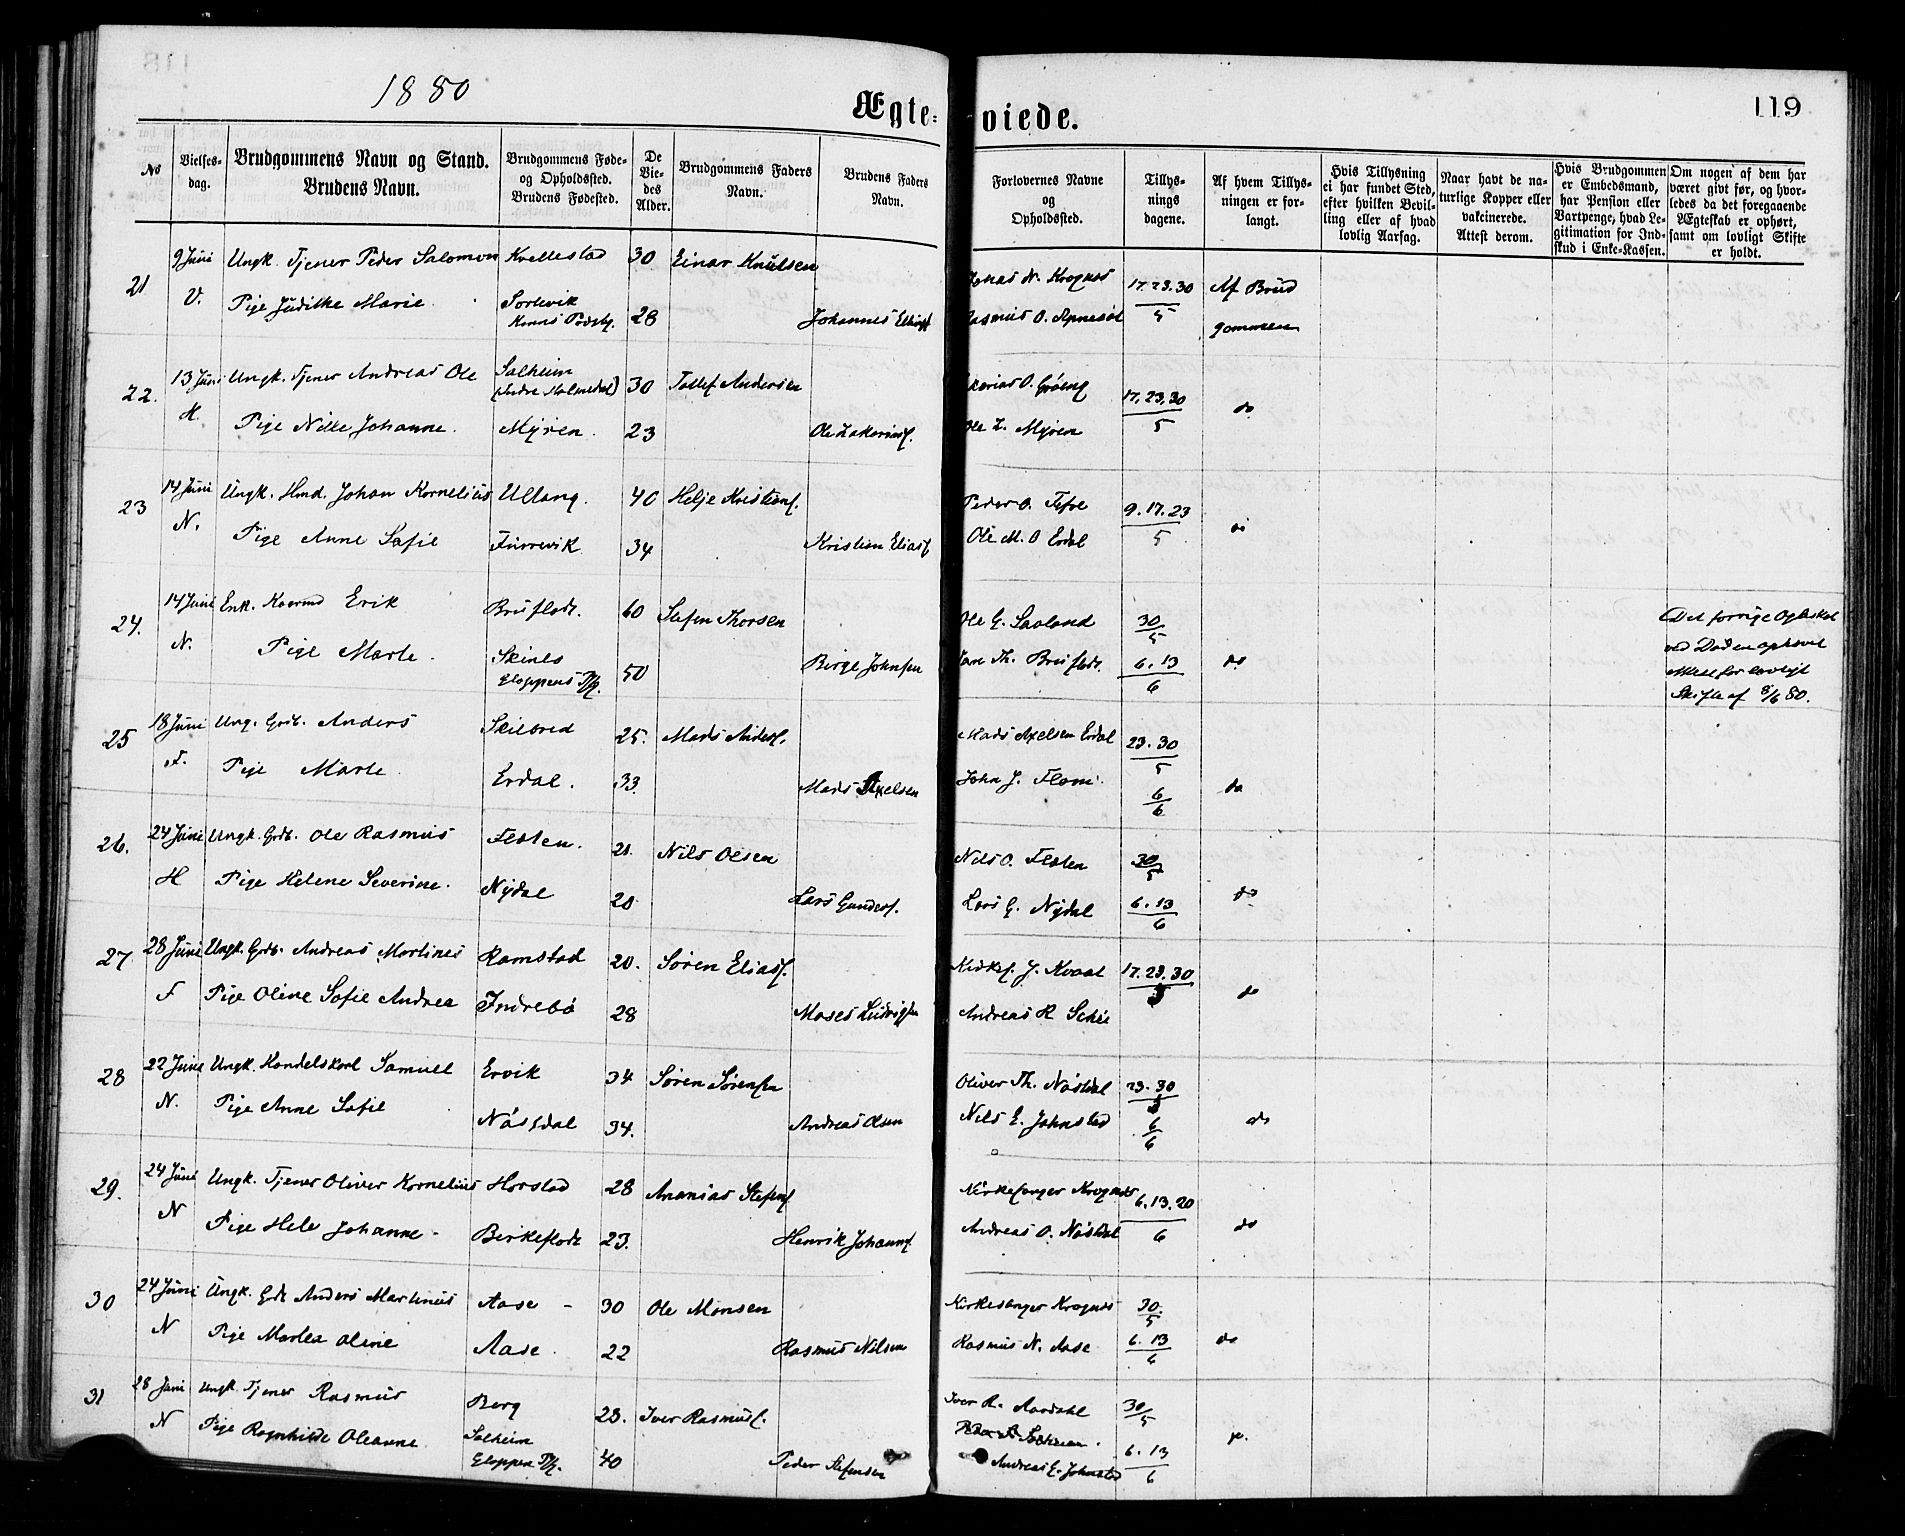 1880
Ægteviede.
119
No
Vielsesdag.
Brudgommens Navn og Stand.
Brudens Navn.
Brudgommens Føde- og Opholdssted.
Brudens Fødested.
De Viedes Alder.
Brudgommens Faders Navn.
Brudens Faders Navn.
Forlovernes Navne og Opholdssted.
Tillysnings dagene.
Af hvem Tillysningen er forlangt.
Hvis Tillysning ei har fundet Sted, efter hvilken Bevilling eller af hvad lovlig Aarsag.
Naar havt de naturlige Kopper eller vakcinerede. Attest derom.
Hvis Brudgommen er Embedsmand, har Pension eller Vartpenge, hvad Legitimation for Indskud i Enke-Kassen.
Om nogen af dem har været givt før, og hvorledes da det foregaaende Ægteskab er ophørt, samt om lovligt Skifte er holdt.
21 9 Juni Ungk. Tjener Peder Salomon Kvellestad 30 Einar Knutsen Jonas N. Krognæs 17. 23. 30 Af Brud
V. Pige Judithe Marie Sortevik 28 Johannes Rasmus O. 5 gommen
Kinns Præstg.
22. 13 Juni Ungk. Tjener Andreas Ole Solheim 30 Tollef Andersen 17. 23. 30
(Indre Holmedal)
H. Pige Nille Johanne. Myren. 23 Ole Zakariass. Ole Z. Myren 5 do
23 14 Juni Ungk. Hmd. Johan Kornelius Ullang. 40 Helje Kristens. Peder O. Tefre 9. 17. 23
N. Pige Anne Sofie Furrevik 34 Kristen Eliass. Ole M. O Erdal 5 do
24. 14 Juni Enk. Kaarmd Erik Bruflodt. 60 Stefen Thorsen Ole G. Saoland 30/5 Det forrige Egteskab
ved Døden ophævet
N. Pige Marte. Skinlo 50 Birge Johnsen Th. Bruflodt. 6. 13/6 do Attest for lovligt
Gloppens Pg. Skifte af 8/6 80.
25 18 Juni Ung. Grdb. Anders Skilbred 25. Mads Anders. Mads Axelsen Erdal 23. 30/5
F. Pige Marte Erdal. 33. Mads Axelsen John J. Flom 6/6 do
26. 24 Juni Ungk. Grdb. Ole Rasmus Flolen. 21. Nils Olsen Nils O. Flolen 30/5
H Pige Helene Severine. Nydal 20 Lars Gunders. Lars G. Nydal 6. 13/6 do
27 28 Juni Ungk. Grdb. Andreas Martines Ramstad 20. Søren Eliass. Kirkes. J. Kvaal 17. 23. 30/5
F Pige Oline Sofie Andrea Indrebø 28 Moses Ludvigsen Andreas R Schei do
28 22 Juni Ungk. Handelskarl Samuel Ervik 34 Søren Sørensen Oliver Th. Nøstdal 23. 30/5
N. Pige Anne Sofie Nøstdal 34. Andreas Olsen Nils E. Johnstad 6/6 do
29. 24 Juni Ungk. Tjener Oliver Kornelius Horstad 28 Ananias Stefens. Kirkesanger Krognæs 6. 13. 20
N Pige Hele Johanne Birkeflodt 23. Henrik Johanns. Andreas O. Nøstdal 6 do
30 24 Juni Ungk. Grdb Anders Martinus Aase 30 Ole Monsen Kirkesanger Krognæs 30/5
N Pige Martea Oline Aase. 22 Rasmus Nilsen Rasmus N. Aase 6. 13/6 do
31 28 Juni Ungk. Tjener Rasmus Berg 23. Iver Rasmuss. Iver R. Aardahl 30/5
N Pige Ragnhilde Oleanne Solheim 40 Peder Stefensen 6. 13/6
Gloppen Pg. Andreas E. Johnstad